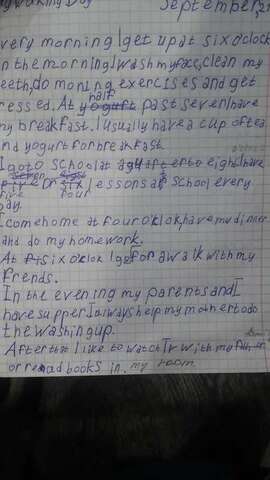 g Working Day September, 2
very morning I get up at six o'clock
n the morning I wash my face, clean my
eeth, do morning exercises and get
ressed. At half past seven I have
my breakfast. I usually have a cup of tea
nd yogurt for breakfast.
I go to school at after to eight, have
five or six lessons at school every
day.
I come home at four oklok, have my dinner
and do my homework.
At six oklok I go for a walk with my
frends.
In the evening my parents and I
have supper. I always help my mother to do
the washing up.
After that I like to watch TV with my
or read books in my room